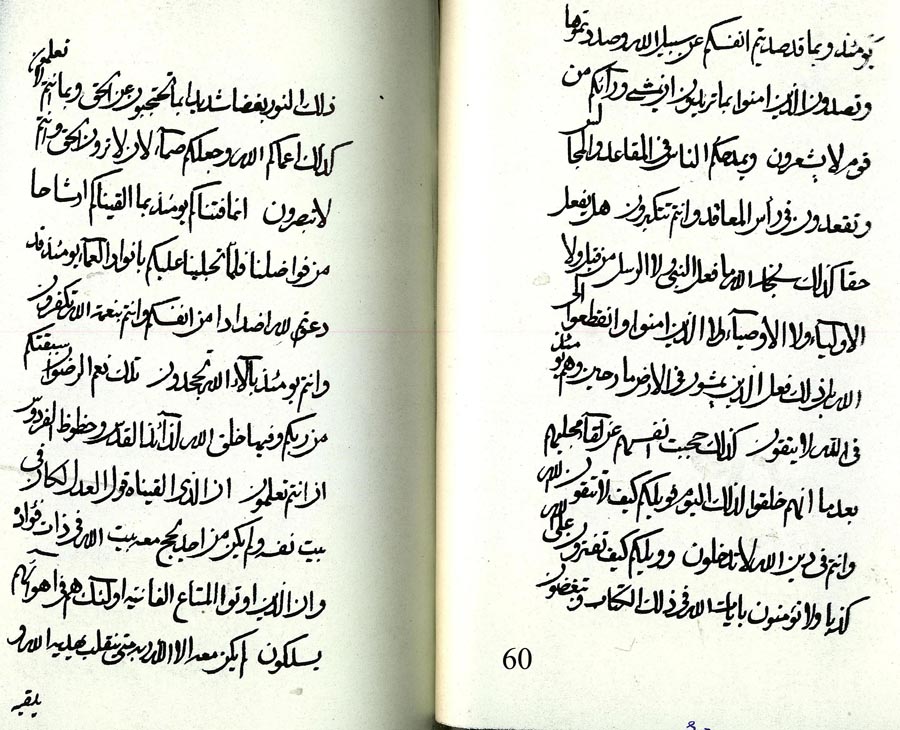 يومئذ وبما قد صديتم انفسكم عن سبيل الله وصددتموها
وتصدون الذين امنوا بما تريدون ان يشي ورائكم من
قوم لا يشعرون ويمدحكم الناس في المقاعد والمجالس
وتقعدون في رأس المعاقد وانتم تتكبرون هل يفعل
حقا كذلك الله ما فعل النبي ولا الرسل من قبل ولا
الاولياء ولا الاوصياء ولا الذين امنوا وانقطعوا الى
الله بل ذلك فعل الذين يمشون في الارض مارحين وهم يومئذ
في الله لا يتقون كذلك حجبت انفسهم عن لقاء محبيهم
بعد ما انهم خلقوا لذلك اليوم فويلكم كيف لا تتقون لله
وانتم في دين الله لا تدخلون وويلكم كيف تفترون على الله
كذبا ولا تؤمنون بايات الله في ذلك الكتاب وتبغضون
60
ذلك النور بغضا شديدا بما تحتجبون عن الحق وبما انتم لا تعلمون
كذلك اعماكم الله وجعلكم صماء لان لا ترون الحق وانتم
لا تبصرون انما فتناكم يومئذ بما القيناكم ارشاحا
من فواضلنا فلما تجلينا عليكم بانوار العماء يومئذ قد
دعوتم لله اضدادا من انفسكم وانتم بنعمة الله تكفرون
وانتم يومئذ بآلاء الله تجحدون تلك نعم الرضوان سبقتكم
من ربكم وفيها خلق الله لذائذ القدس وحظوظ الفردوس
ان انتم تعلمون ان الذي القيناه قول العدل لكان في
بيت نفسه ولم يكن من احد يحج معه بيت الله في ذات فؤاد
وان الذين اوتوا المتاع الفانيه اولئك هم في اهوائهم
يسلكون لم يكن معه الا الله ربه حتى ينقلب بهديه الله و
يلقيه